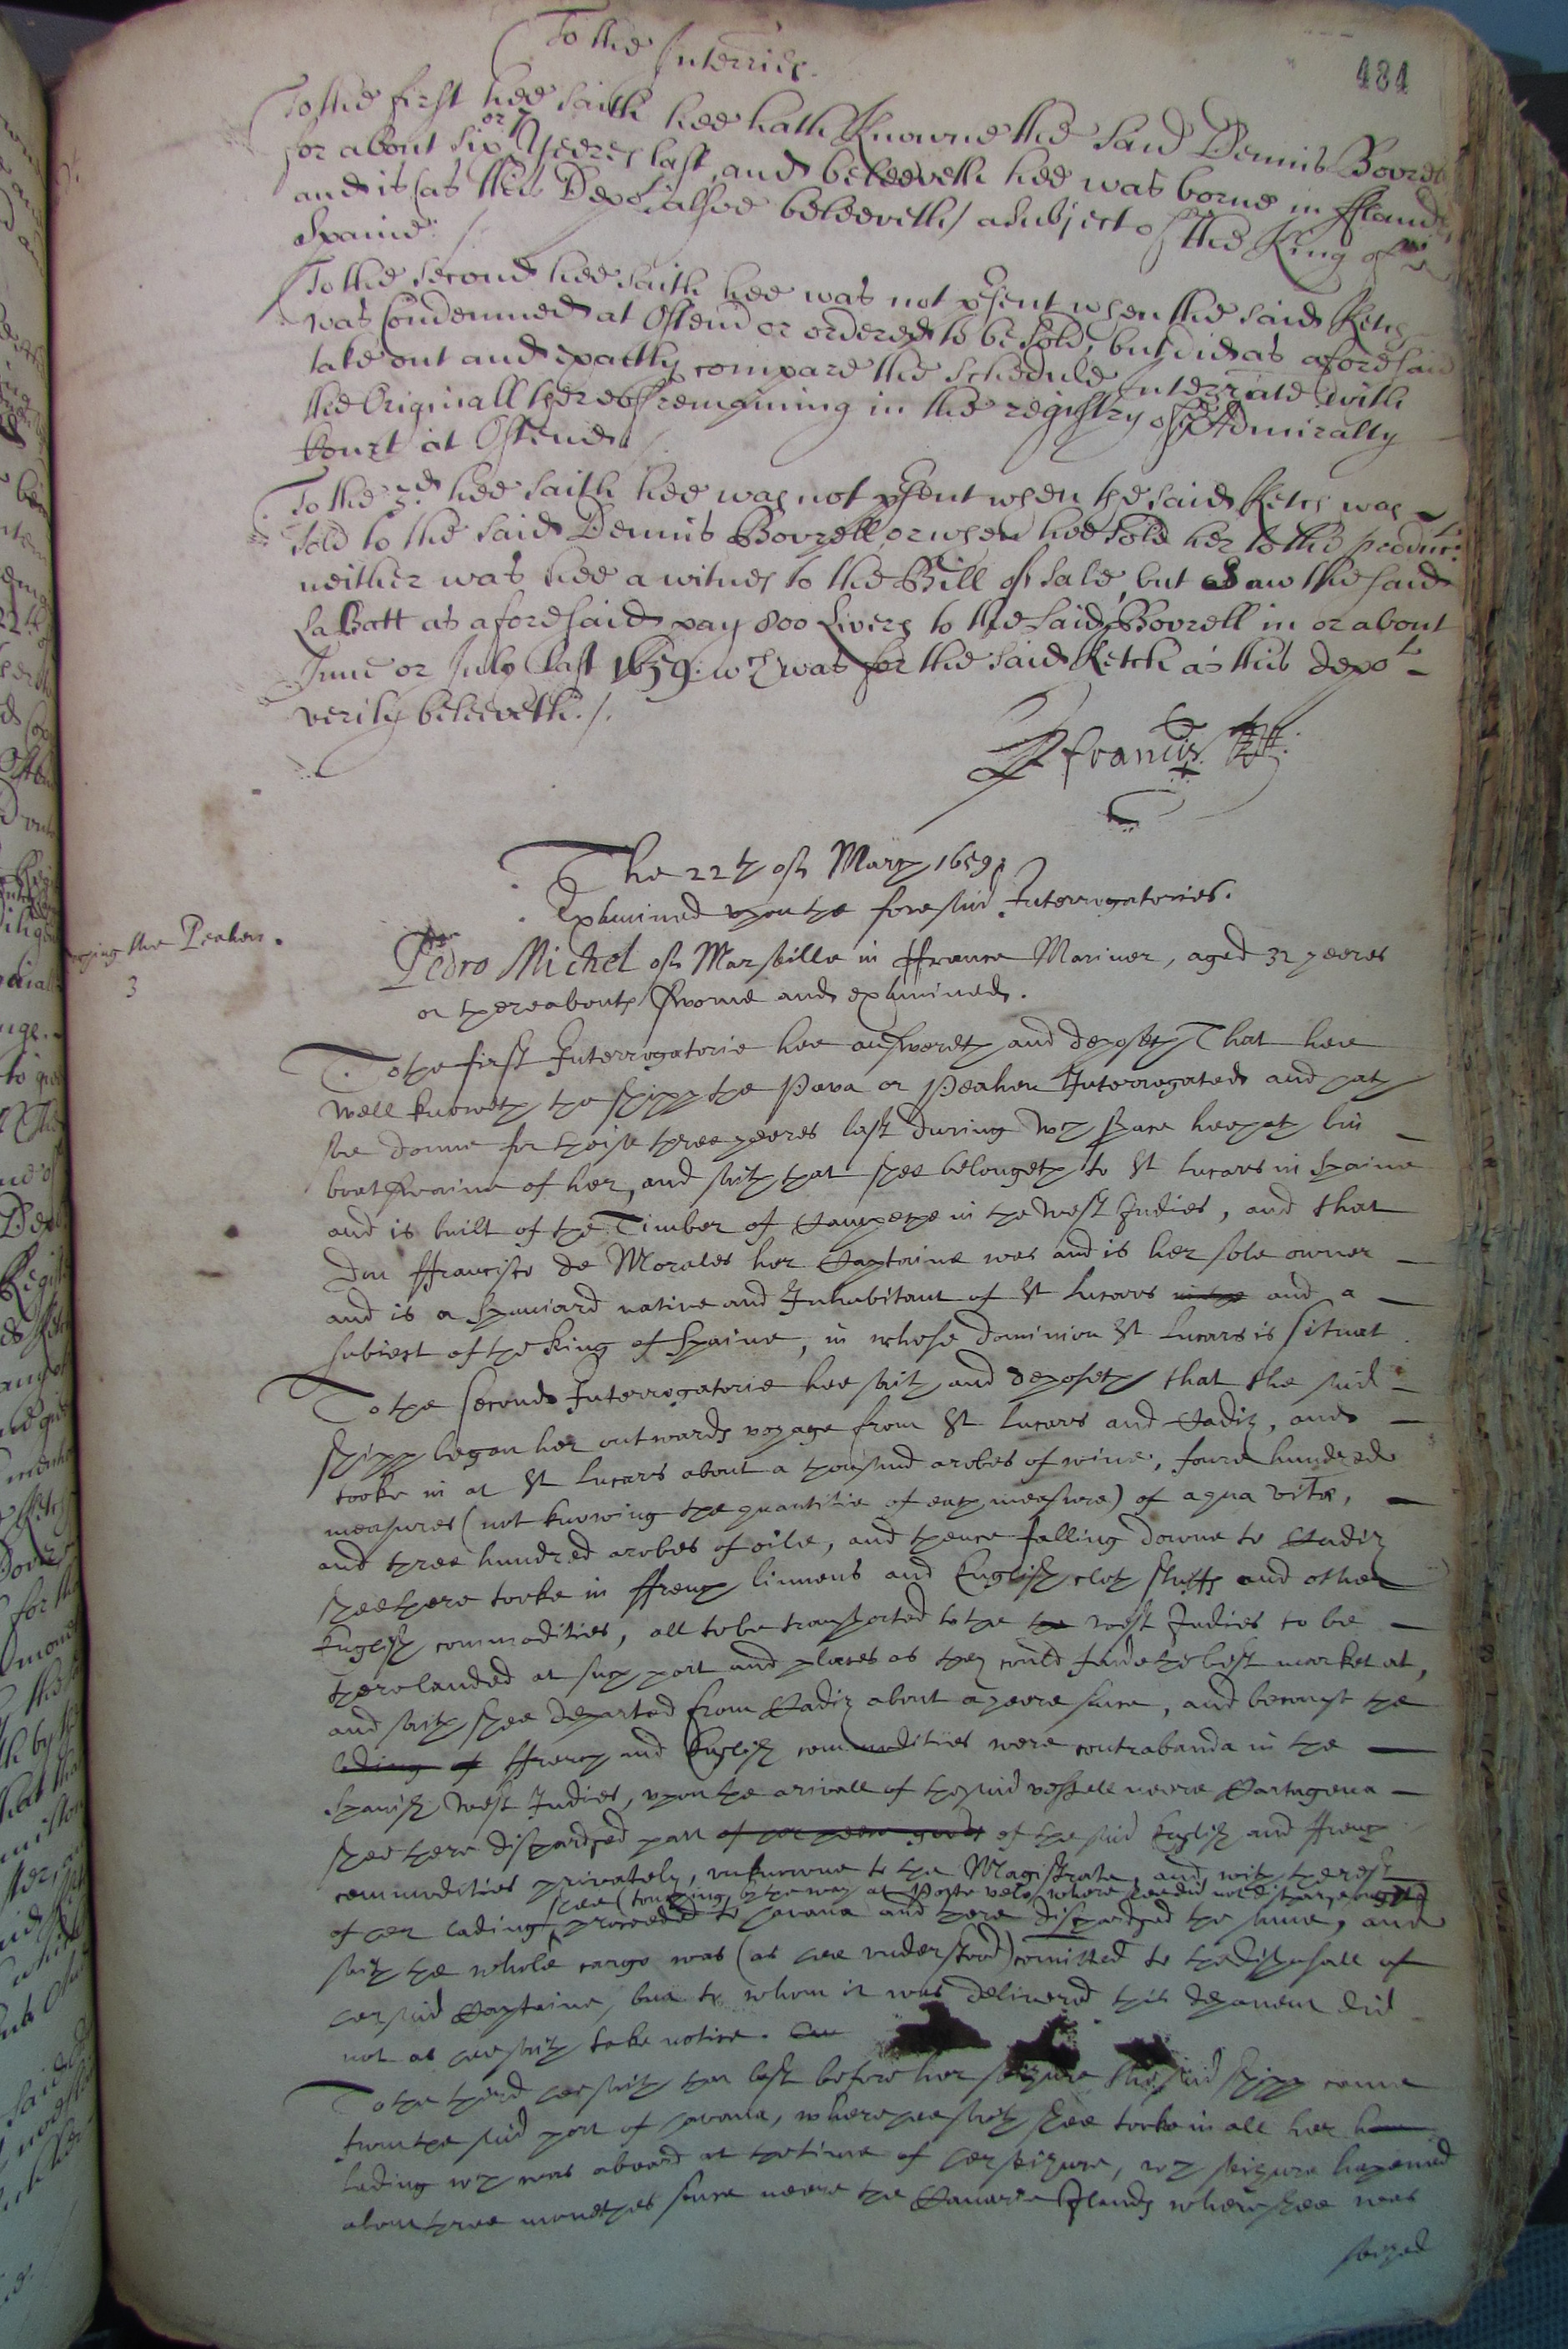 484
To the Interries.
To the first hee saith hee hath knowne the said Dennis Bovrell
for about six or 7 yeeres last, and beleeveth hee was borne in fflandrs,
and is (as this Depot alsoe beleeveth) a subject of the King of
Spaine./
To the second hee saith hee was not psent when the said Ketch
was Condemned at Ostend or ordered to be sold, but did as aforesaid
take out and exactly compare the schedule Interrate with
the Originall thereof remayning in the registry of ye Admiralty
Court at Ostend./
To the 3d. hee saith hee was not psent when the said Ketch was
sold to the said Dennis Bovrell, or when hee sold her to the producent
neither was hee a witnes to the Bill of sale, but saw the said
La Batt as aforesaid pay 800 Livers to the said Bovrell in or about
June or July last 1659. wch was for the said Ketch as this depot
verily beleeveth./.
ffrancis
The 22th of March 1659.
Examined upon the foresaid Interrogatories.
the Peahen.
3
Pedro Michel of Marseille in ffrance Mariner, aged 32 yeeres
or thereabouts sworne and examined.
To the first Interrogatorie hee answereth and deposeth That hee
well knoweth the shipp the Pava or Peahen Interrogated and hath
soe donne for theise three yeeres last during wch space hee hath bin
boatswaine of her, and saith that shee belongeth to St Lucars in Spaine
and is built of the Timber of Campeche in the West Indies, and that
Don ffrancisco de Morales her Captaine was and is her sole owner
and is a Spaniard native and Inhabitant of St Lucars in the and a
subiect of the King of Spaine, in whose dominion St Lucars is situat.
To the second Interrogatorie hee saith and deposeth that the said
shipp began her outwards voyage from St Lucars and Cadiz, and
tooke in at St Lucars about a thousand arobes of wine, foure hundred
measures (not knowing the quantitie of each measure) of aqua vitæ,
and three hundred arobes of oile, and thence falling downe to Cadiz
shee there tooke in ffrench linnens and English cloth stuffs and other
English commodities, all to be transported to the the west Indies to be
there landed at such port and places as they could finde the best market at,
and saith shee departed from Cadiz about a yeere since, and because the
lading of ffrench and English commodities were contrabanda in the
Spanish West Indies, upon the arivall of the said vessell neere Cartagena
shee there dischardged part of her goods of the said English and ffrench
commodities privately, unknowne to the Magistrate, and with the rest
shee (touching by the way at Porto velo, where shee did not discharge any)
of her lading proceeded to Havana and there dischardged the same, and
saith the whole cargo was (as hee understood) comitted to the disposall of
her said Captaine, but to whom it was delivered this deponent did
not as hee saith take notice.
To the third hee saith that last before her seizure the said shipp came
from the said port of Havana, where hee saith shee tooke in all her
lading wch was aboard at the time of her seizure, wch seizure hapened
about three monethes since neere the Canarie Ilands where shee was
seized